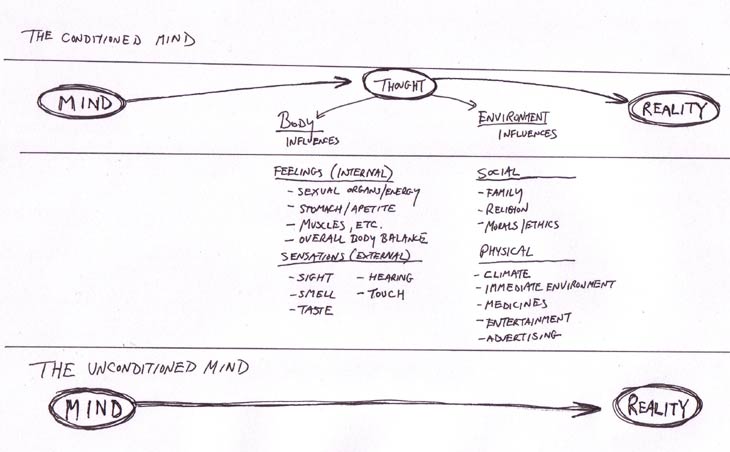 THE CONDITIONED MIND
MIND
THOUGHT
REALITY
BODY
INFLUENCES
ENVIRONMENT
INFLUENCES
FEELINGS (INTERNAL)
- SEXUAL ORGANS/ENERGY
- STOMACH/APETITE
- MUSCLES, ETC.
- OVERALL BODY BALANCE
SENSATIONS (EXTERNAL)
- SIGHT - HEARING
- SMELL - TOUCH
- TASTE
SOCIAL
- FAMILY
- RELIGION
- MORALS/ETHICS
PHYSICAL
- CLIMATE
- IMMEDIATE ENVIRONMENT
- MEDICINES
- ENTERTAINMENT
- ADVERTISING
THE UNCONDITIONED MIND
MIND
REALITY